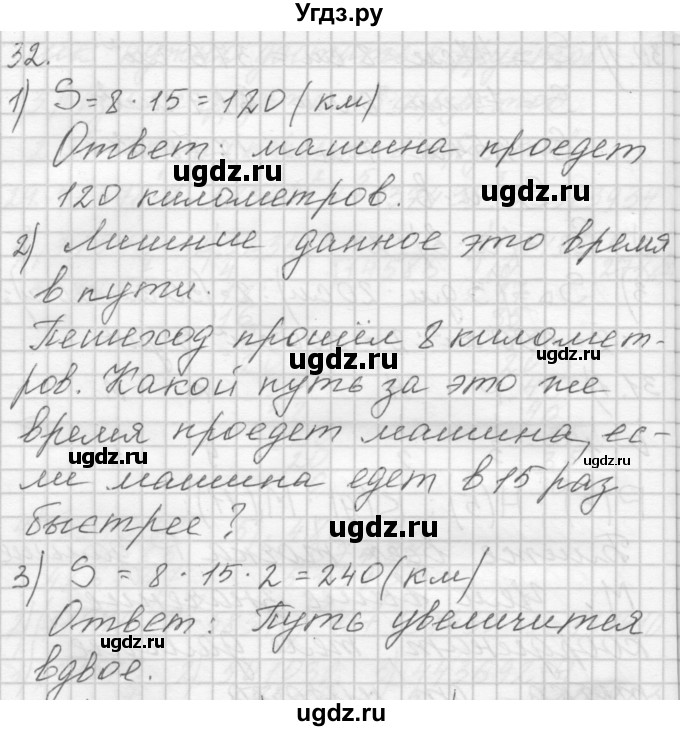 Угдз.ру
32.
1) S = 8 · 15 = 120 (км)
Ответ: машина проедет
ugdz.ru ugdz.ru
120 километров.
2) Лишние данное это время
в пути.
Пешеход прошёл 8 километ-
ugdz.ru ugdz.ru
ров. Какой путь за это же
время проедет машина, ес-
ugdz.ru ugdz.ru
ли машина едет в 15 раз
быстрее?
ugdz.ru
3) S = 8 · 15 · 2 = 240 (км)
Ответ: Путь увеличится
ugdz.ru
вдвое.
ugdz.ru